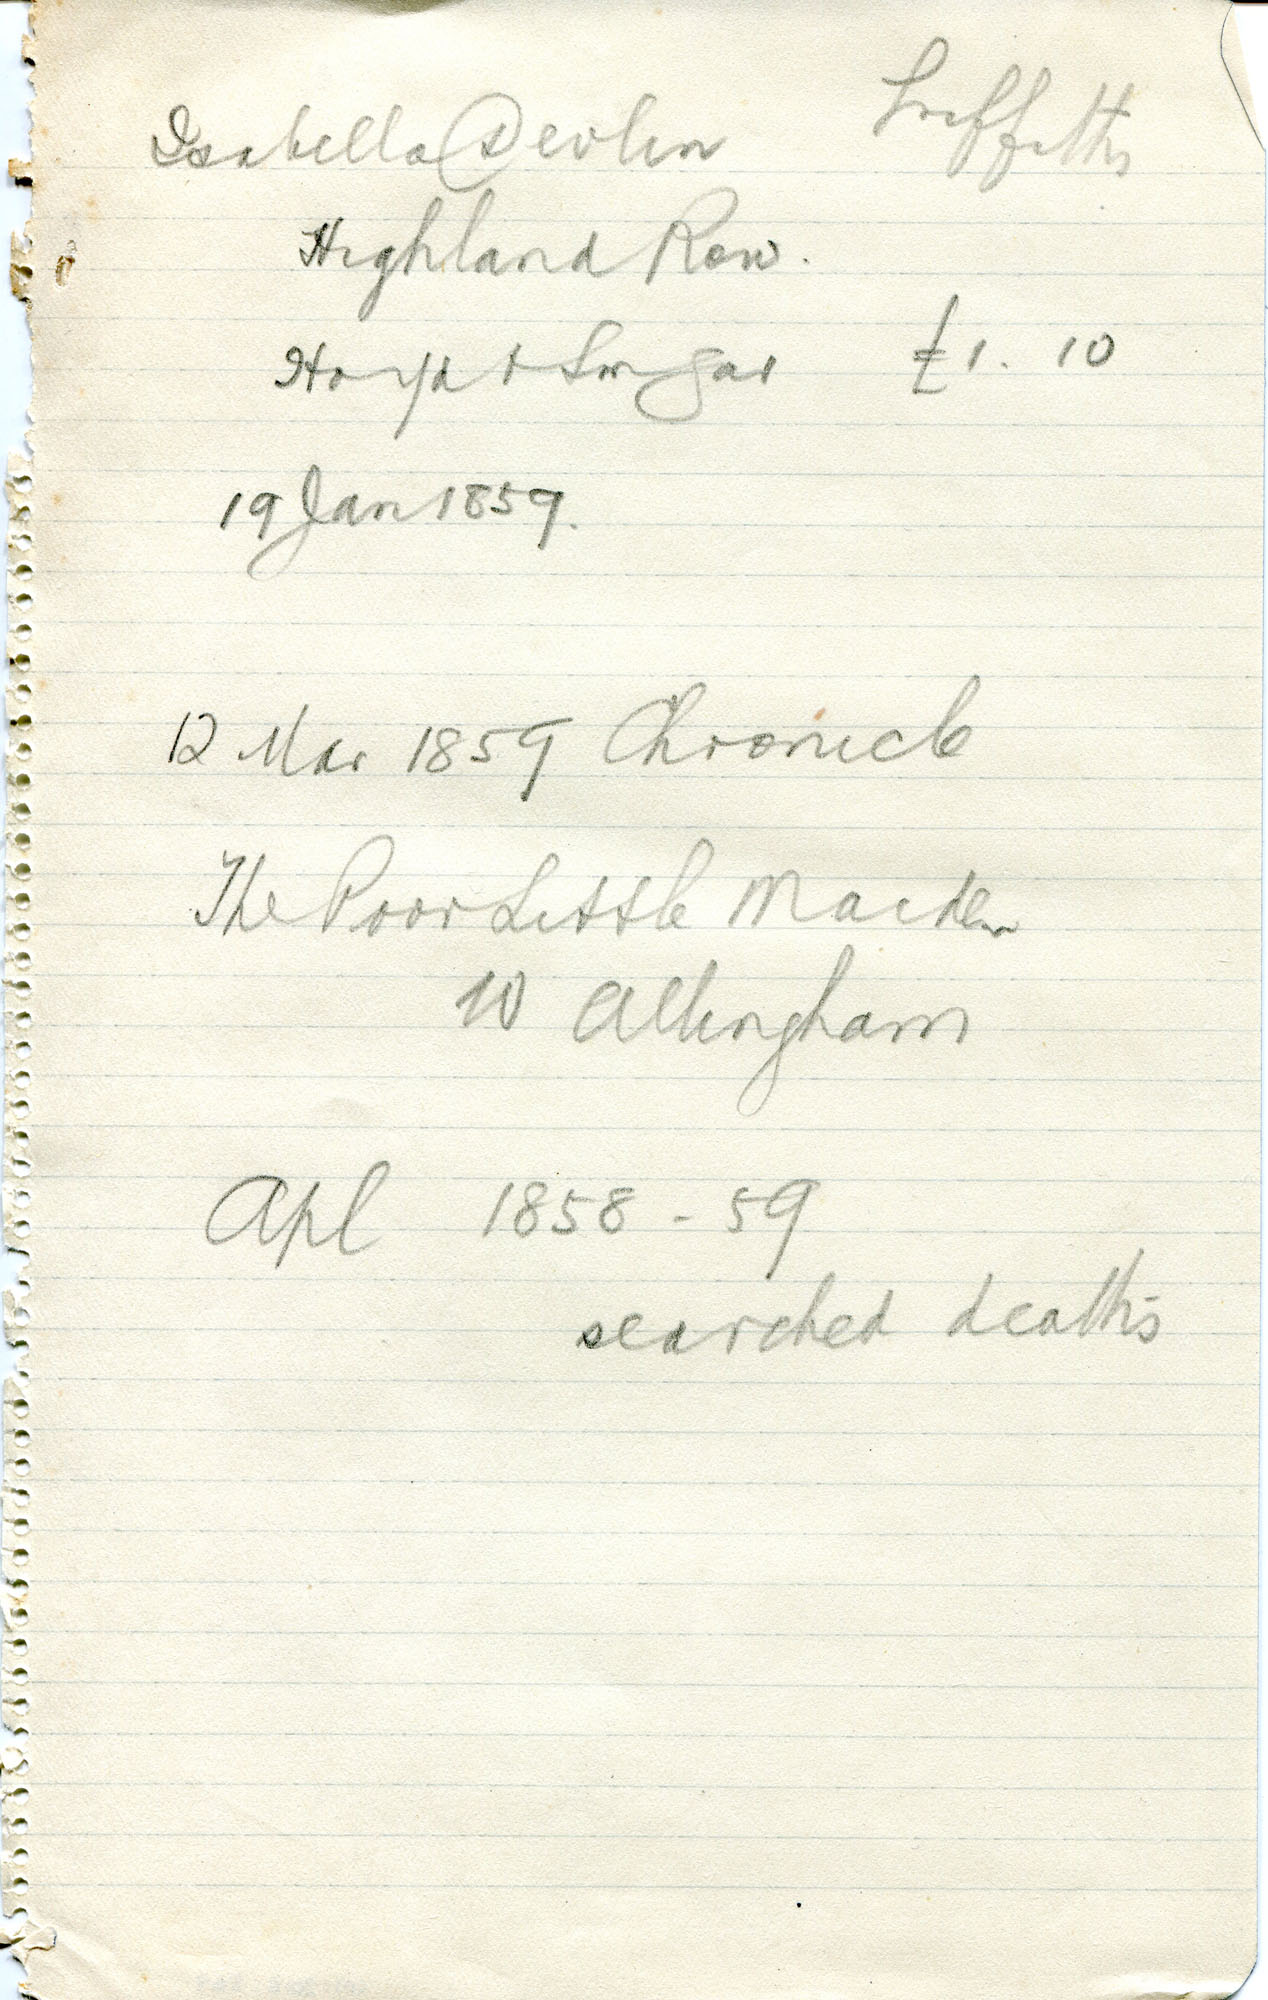 Griffiths
Isabella Devlin
Highland Row.
£1. 10
19 Jan 1859.
12 Mar 1859 Chronicle
The Poor Little Maiden
W Allingham
Apl 1858 - 59
searched deaths